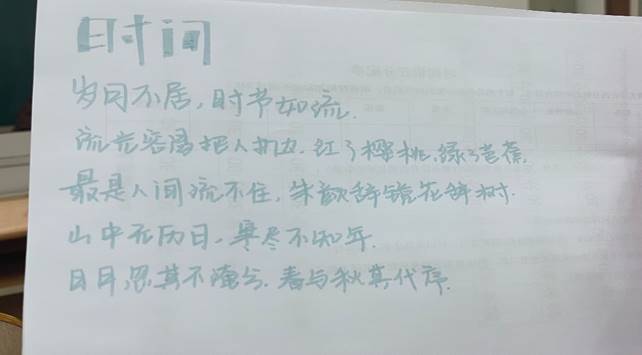 时间
岁月不居，时节如流.
流光容易把人抛. 红了樱桃，绿了芭蕉.
最是人间流不住，朱颜辞镜花辞树.
山中无历日，寒尽不知年.
日月忽其不淹兮. 春与秋其代序.